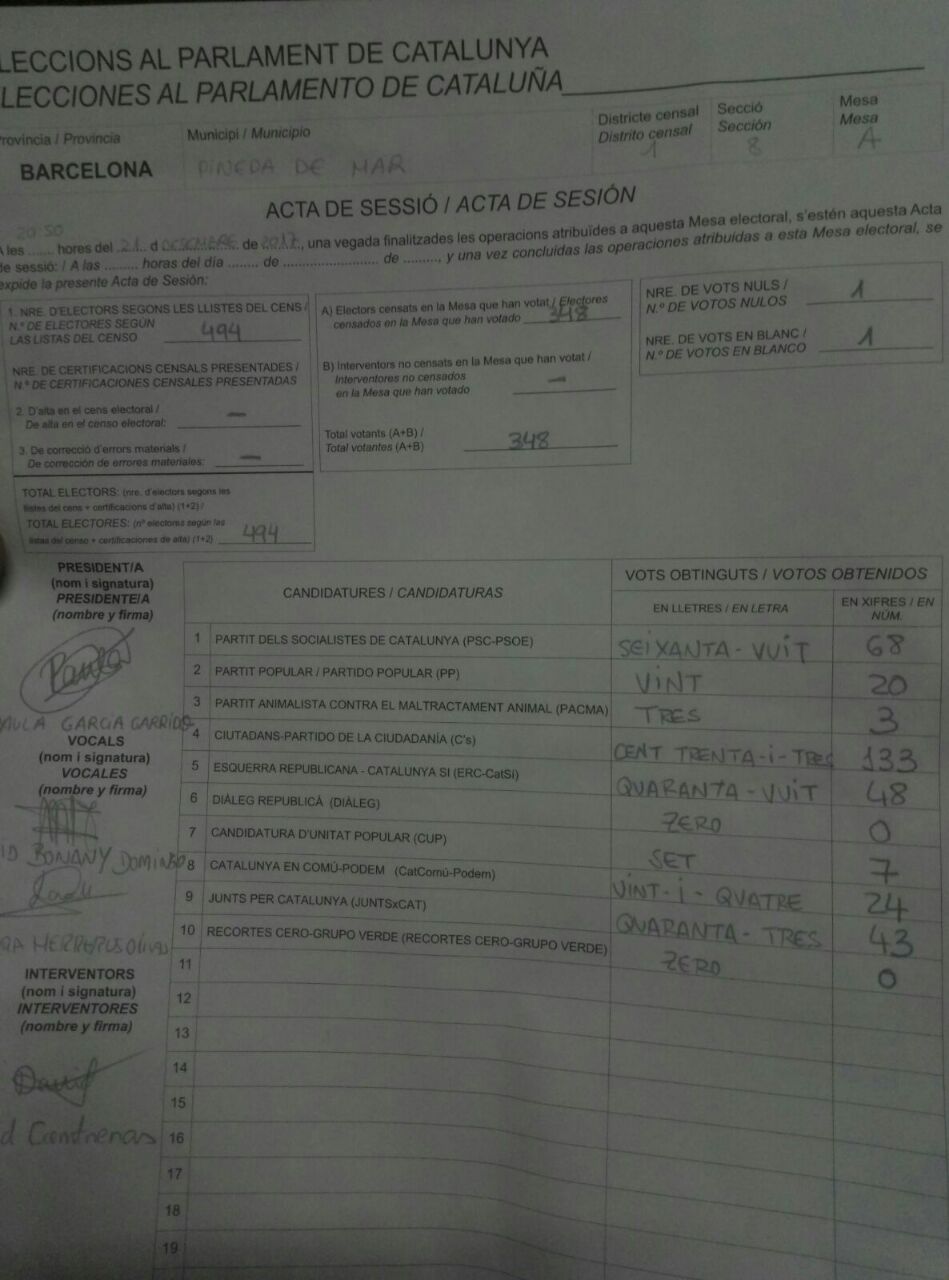 LECCIONS AL PARLAMENT DE CATALUNYA
LECCIONES AL PARLAMENTO DE CATALUÑA
rovíncia / Provincia
BARCELONA
Municipi / Municipio
PINEDA DE MAR
Districte censal
Distrito censal
1
Secció
Sección
8
Mesa
Mesa
A
ACTA DE SESSIÓ / ACTA DE SESIÓN
20:50
A les ....... hores del 21 d DESEMBRE de 2017, una vegada finalitzades les operacions atribuïdes a aquesta Mesa electoral, s'estén aquesta Acta
de sessió: / A las ......... horas del día ........ de ........................ de ........., y una vez concluidas las operaciones atribuidas a esta Mesa electoral, se
expide la presente Acta de Sesión:
1. NRE. D'ELECTORS SEGONS LES LLISTES DEL CENS /
N.º DE ELECTORES SEGÚN
LAS LISTAS DEL CENSO 494
NRE. DE CERTIFICACIONS CENSALS PRESENTADES /
N.º DE CERTIFICACIONES CENSALES PRESENTADAS
2. D'alta en el cens electoral /
De alta en el censo electoral: —
3. De correcció d'errors materials /
De corrección de errores materiales: —
TOTAL ELECTORS: (nre. d'electors segons les
llistes del cens + certificacions d'alta) (1+2) /
TOTAL ELECTORES: (nº electores según las
listas del censo + certificaciones de alta) (1+2) 494
A) Electors censats en la Mesa que han votat / Electores
censados en la Mesa que han votado 348
B) Interventors no censats en la Mesa que han votat /
Interventores no censados
en la Mesa que han votado —
Total votants (A+B) /
Total votantes (A+B) 348
NRE. DE VOTS NULS /
N.º DE VOTOS NULOS 1
NRE. DE VOTS EN BLANC /
N.º DE VOTOS EN BLANCO 1
PRESIDENT/A
(nom i signatura)
PRESIDENTE/A
(nombre y firma)
Paula
PAULA GARCIA GARRIDO
VOCALS
(nom i signatura)
VOCALES
(nombre y firma)
ID BONANY DOMINGO
INTERVENTORS
(nom i signatura)
INTERVENTORES
(nombre y firma)
David
d Contreras
CANDIDATURES / CANDIDATURAS
VOTS OBTINGUTS / VOTOS OBTENIDOS
EN LLETRES / EN LETRA
EN XIFRES / EN
NÚM.
1 PARTIT DELS SOCIALISTES DE CATALUNYA (PSC-PSOE) SEIXANTA-VUIT 68
2 PARTIT POPULAR / PARTIDO POPULAR (PP) VINT 20
3 PARTIT ANIMALISTA CONTRA EL MALTRACTAMENT ANIMAL (PACMA) TRES 3
4 CIUTADANS-PARTIDO DE LA CIUDADANÍA (C's) CENT TRENTA-I-TRES 133
5 ESQUERRA REPUBLICANA - CATALUNYA SI (ERC-CatSí) QUARANTA-VUIT 48
6 DIÀLEG REPUBLICÀ (DIÀLEG) ZERO 0
7 CANDIDATURA D'UNITAT POPULAR (CUP) SET 7
8 CATALUNYA EN COMÚ-PODEM (CatComú-Podem) VINT-I-QUATRE 24
9 JUNTS PER CATALUNYA (JUNTSxCAT) QUARANTA-TRES 43
10 RECORTES CERO-GRUPO VERDE (RECORTES CERO-GRUPO VERDE) ZERO 0
11
12
13
14
15
16
17
18
19